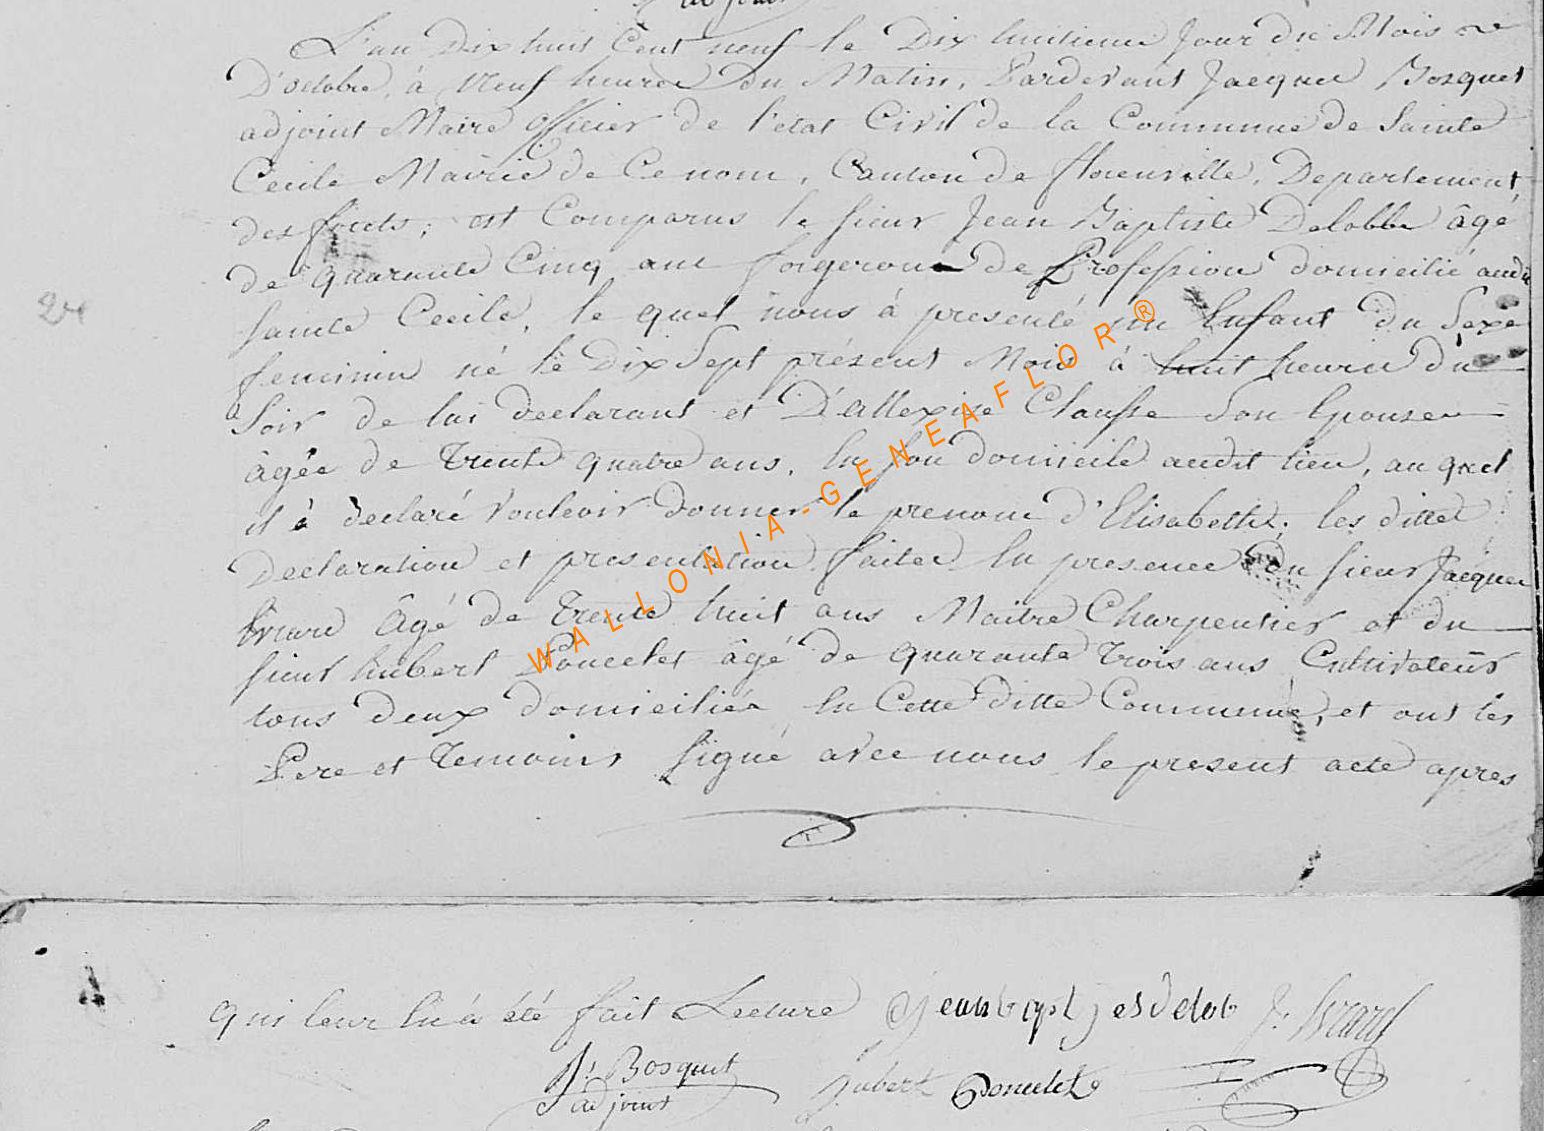 adjoint
L'an Dix huit Cent neuf le Dix huitieme Jour du Mois de
D'octobre, à Neuf heures Du Matin, Pardevant Jacques Bosquet
adjoint Maire officier de l'état Civil de la Commune de Sainte
Cecile Mairie de Ce nom, Canton de florenville, Departement
des forets; est Comparus le sieur Jean Baptiste Delobbe âgé
de quarante Cinq ans forgeron de Profession domicilié audit
Sainte Cecile, le quel nous à presenté un Enfant du Sexe
feminin né le Dix Sept présent Mois à huit heures Du
Soir de lui declarant et D'Allexise Clausse Son Epouse
âgée de Trente quatre ans, En son domicile audit lieu, au quel
il à declaré Vouloir donner le prenom d'Elisabethe; les dittes
Declaration et presentation faites En presence Du sieur Jacques
Evrard Âgé de Trente huit ans Maître Charpentier et du
sieur hubert Poncelet âgé de quarante Trois ans Cultivateurs
tous deux domiciliés En Cette ditte Commune, et ont les
Pere et Temoins signé avec nous le present acte apres
qui leur En à été fait Lecture Jean baptjes delob J. Evrard
J. Bosquet hubert Poncelet
adjoint
WALLONIA-GENEAFLOR®